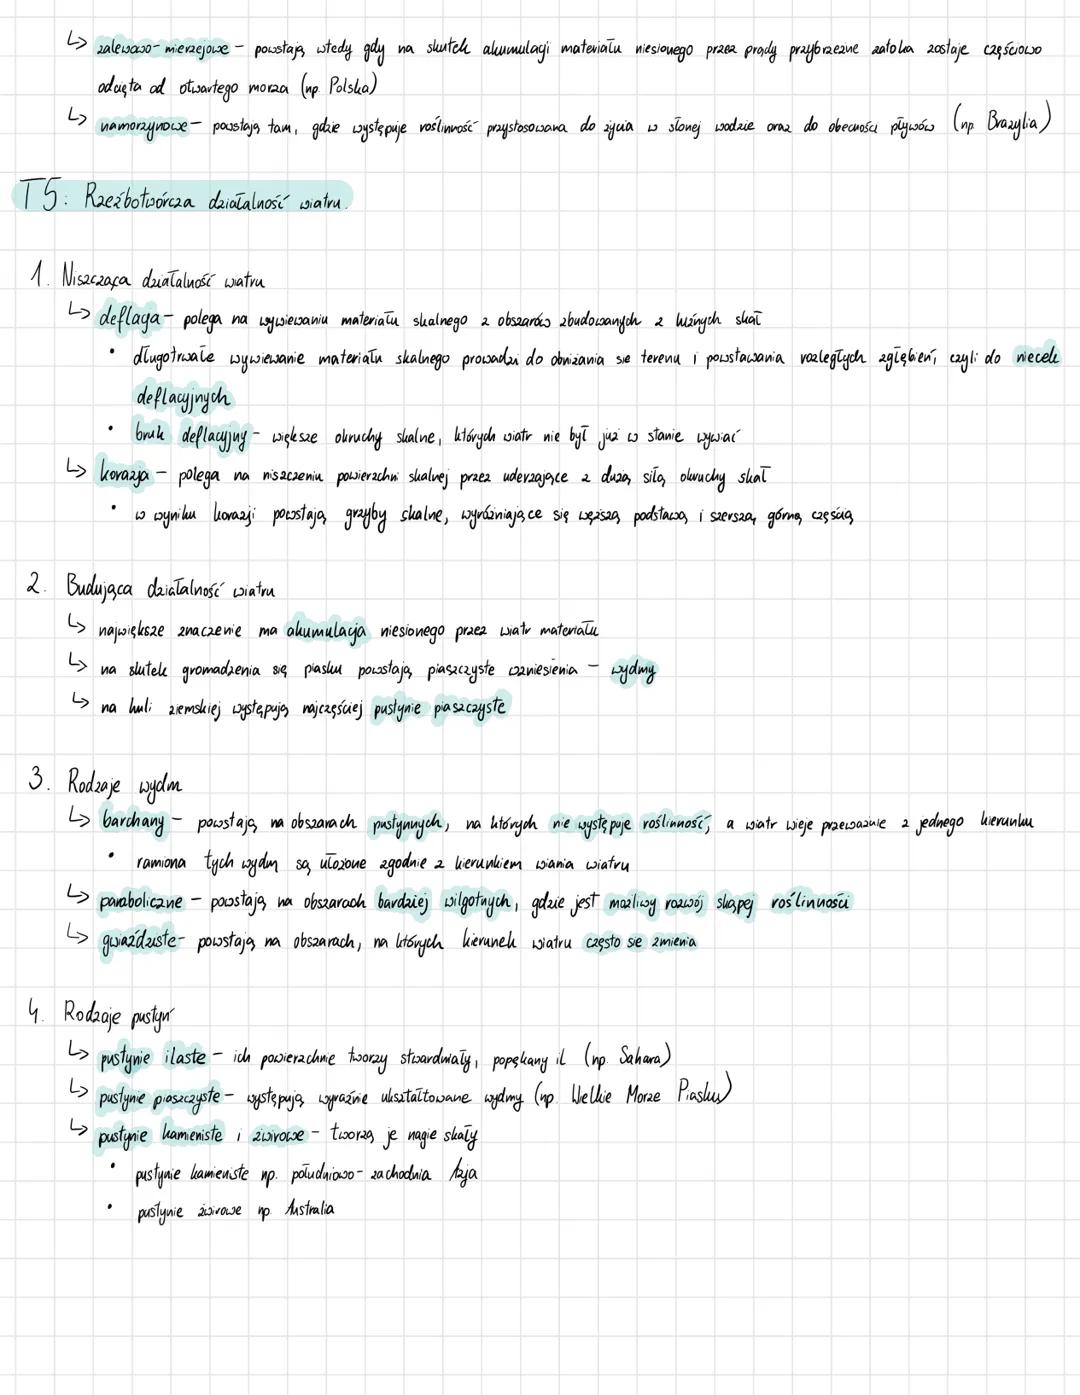 ↳ zalewowo-mierzejowe – powstają wtedy gdy na skutek akumulacji materiału niesionego przez prądy przybrzeżne zatoka zostaje częściowo
odcięta od otwartego morza (np. Polska)
↳ namorzynowe – powstają tam, gdzie występuje roślinność przystosowana do życia w słonej wodzie oraz do obecności pływów (np. Brazylia)
T5: Rzeźbotwórcza działalność wiatru.
1. Niszcząca działalność wiatru
↳ deflacja – polega na wywiewaniu materiału skalnego z obszarów zbudowanych z luźnych skał
• długotrwałe wywiewanie materiału skalnego prowadzi do obniżania sie terenu i powstawania rozległych zgłębień, czyli do niecek
deflacyjnych
• bruk deflacyjny – większe okruchy skalne, których wiatr nie był już w stanie wywiać
↳ korazja – polega na niszczeniu powierzchni skalnej przez uderzające z dużą siłą okruchy skał
• w wyniku korazji powstają grzyby skalne, wyróżniające się węższą podstawą i szerszą górną częścią
2. Budująca działalność wiatru
↳ największe znaczenie ma akumulacja niesionego przez wiatr materiału
↳ na skutek gromadzenia się piasku powstają piaszczyste wzniesienia – wydmy
↳ na kuli ziemskiej występują najczęściej pustynie piaszczyste
3. Rodzaje wydm
↳ barchany – powstają na obszarach pustynnych, na których nie występuje roślinność, a wiatr wieje przeważnie z jednego kierunku
• ramiona tych wydm są ułożone zgodnie z kierunkiem wiania wiatru
↳ paraboliczne – powstają na obszarach bardziej wilgotnych, gdzie jest możliwy rozwój skąpej roślinności
↳ gwiaździste – powstają na obszarach, na których kierunek wiatru często sie zmienia
4. Rodzaje pustyń
↳ pustynie ilaste – ich powierzchnie tworzy stwardniały, popękany ił (np. Sahara)
↳ pustynie piaszczyste – występują wyraźnie ukształtowane wydmy (np. Wielkie Morze Piasku)
↳ pustynie kamieniste i żwirowe – tworzą je nagie skały
• pustynie kamieniste np. południowo-zachodnia Azja
• pustynie żwirowe np. Australia